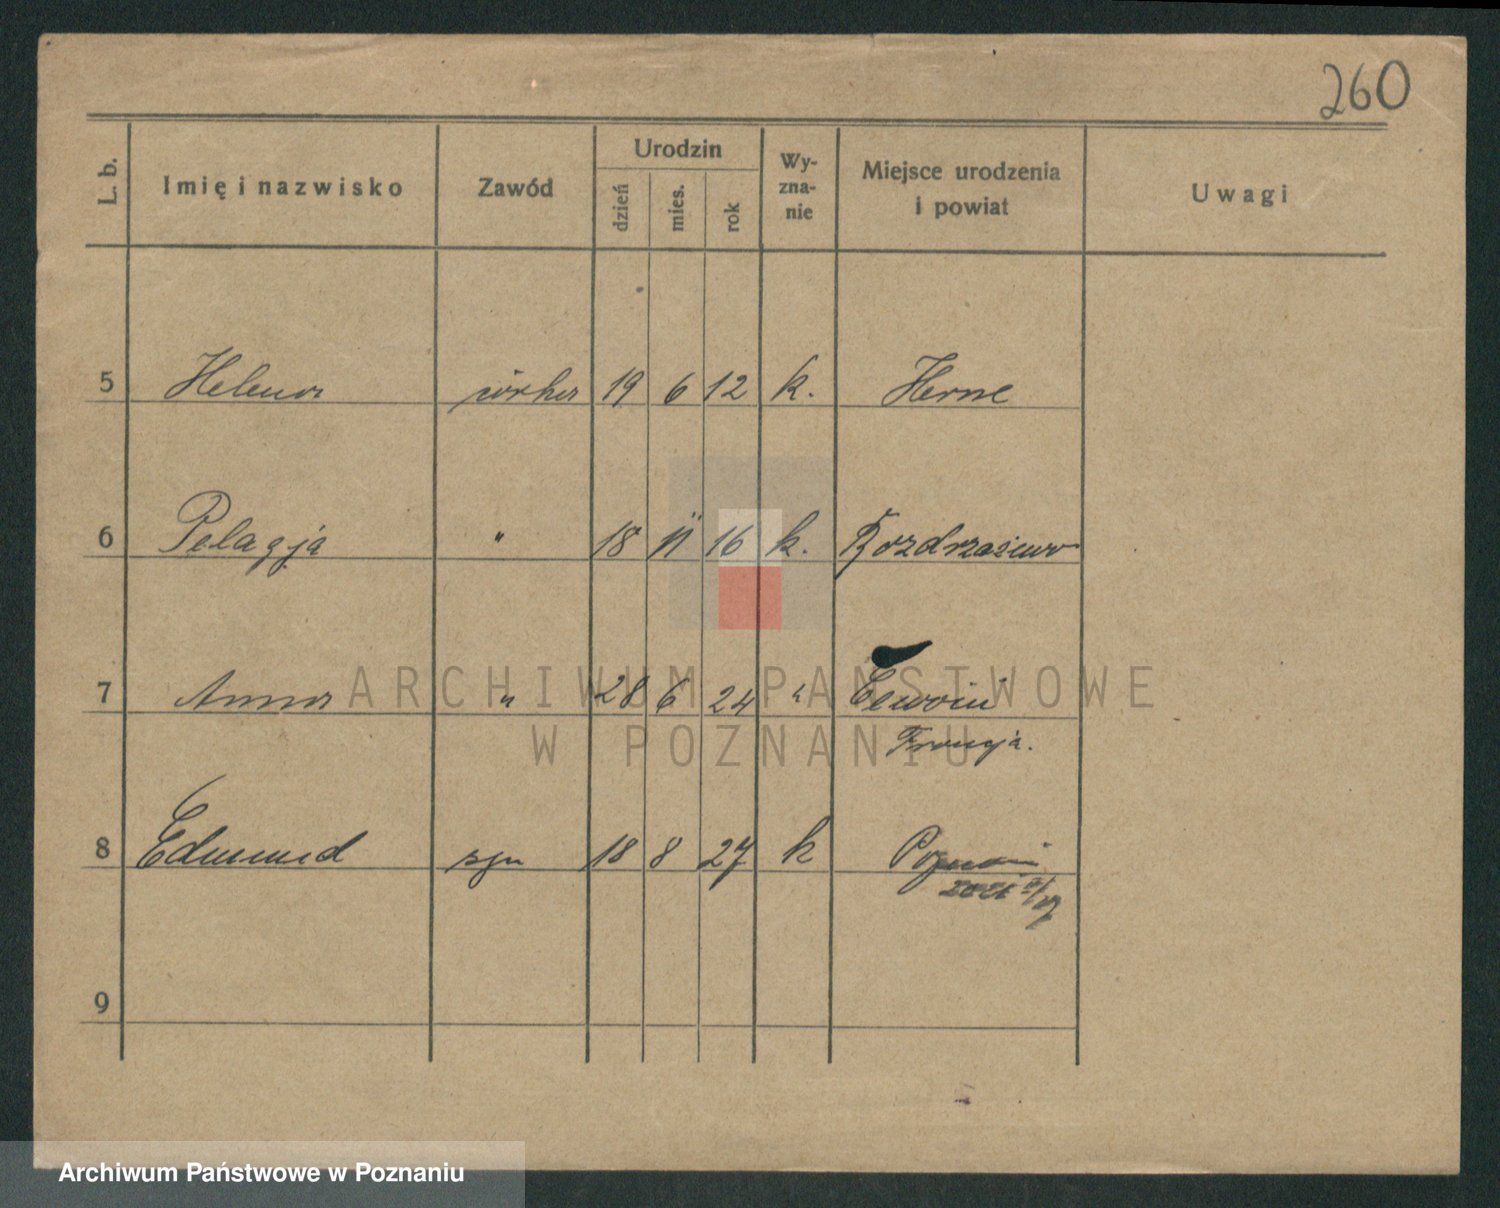 260
L. b. Imię i nazwisko Zawód Urodzin dzień mies. rok Wy-zna-nie Miejsce urodzenia i powiat Uwagi
5 Helena córka 19 6 12 k. Herne
6 Pelagja " 18 11 16 k. Rozdrażewo
7 Anna " 28 6 24 "
Francja.
8 Edmund syn 18 8 27 k Poznań
9
ARCHIWUM PAŃSTWOWE
W POZNANIU
Archiwum Państwowe w Poznaniu